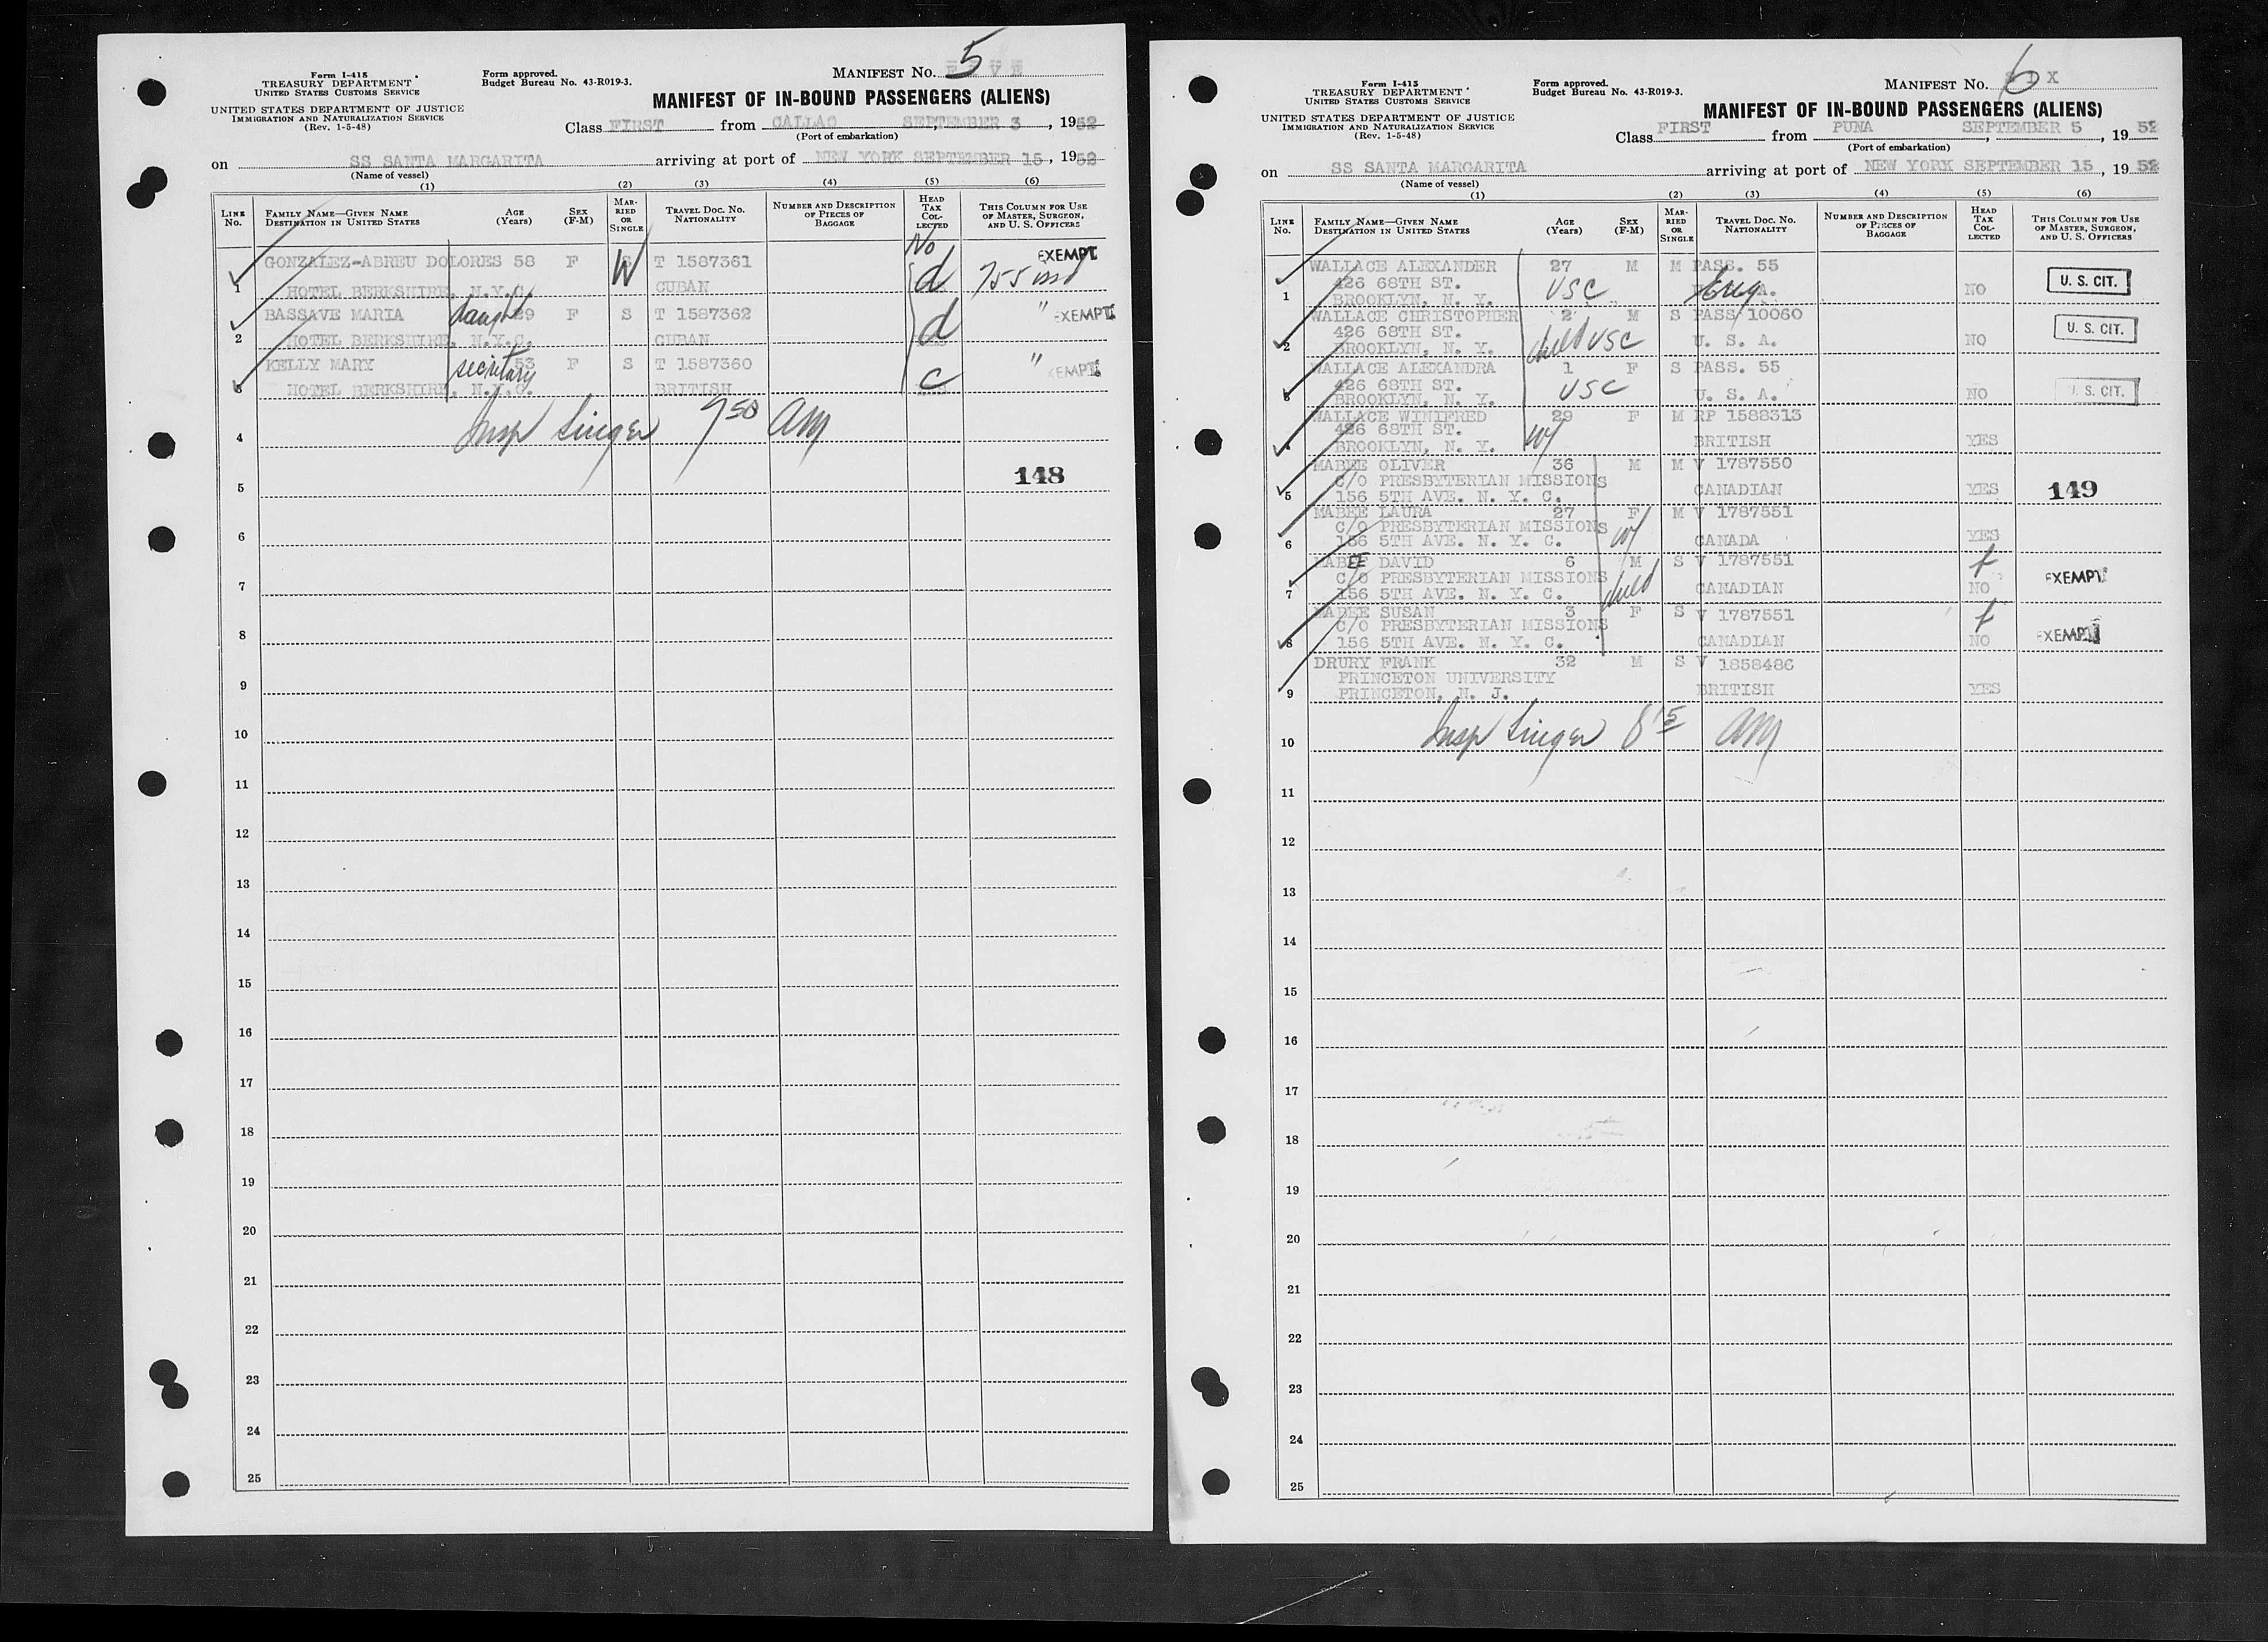 Form I-415
TREASURY DEPARTMENT
UNITED STATES CUSTOMS SERVICE
UNITED STATES DEPARTMENT OF JUSTICE
IMMIGRATION AND NATURALIZATION SERVICE
(Rev. 1-5-48)
Form approved.
Budget Bureau No. 43-R019-3.
MANIFEST NO. FIVE 5
MANIFEST OF IN-BOUND PASSENGERS (ALIENS)
Class FIRST from CALLAO SEPTEMBER 3, 1952
(Port of embarkation)
on SS SANTA MARGARITA arriving at port of NEW YORK SEPTEMBER 15, 1952
(Name of vessel)
(1) (2) (3) (4) (5) (6)
LINE NO. FAMILY NAME—GIVEN NAME DESTINATION IN UNITED STATES AGE (Years) SEX (F-M) MARRIED OR SINGLE TRAVEL DOC. NO. NATIONALITY NUMBER AND DESCRIPTION OF PIECES OF BAGGAGE HEAD TAX COLLECTED THIS COLUMN FOR USE OF MASTER, SURGEON, AND U. S. OFFICERS
No
GONZALEZ-ABREU DOLORES 58 F W T 1587361 d EXEMPT
1 HOTEL BERKSHIRE, N.Y.C. CUBAN
BASSAVE MARIA daught F S T 1587362 d " EXEMPT
2 HOTEL BERKSHIRE, N.Y.C. CUBAN
KELLY MARY secretary 53 F S T 1587360 c " EXEMPT
3 HOTEL BERKSHIRE, N.Y.C. BRITISH
Insp Singer 7 50 AM
4
148
5
6
7
8
9
10
11
12
13
14
15
16
17
18
19
20
21
22
23
24
25
Form I-415
TREASURY DEPARTMENT
UNITED STATES CUSTOMS SERVICE
UNITED STATES DEPARTMENT OF JUSTICE
IMMIGRATION AND NATURALIZATION SERVICE
(Rev. 1-5-48)
Form approved.
Budget Bureau No. 43-R019-3.
MANIFEST NO. SIX 6
MANIFEST OF IN-BOUND PASSENGERS (ALIENS)
Class FIRST from PUNA SEPTEMBER 5, 1952
(Port of embarkation)
on SS SANTA MARGARITA arriving at port of NEW YORK SEPTEMBER 15, 1952
(Name of vessel)
(1) (2) (3) (4) (5) (6)
LINE NO. FAMILY NAME—GIVEN NAME DESTINATION IN UNITED STATES AGE (Years) SEX (F-M) MARRIED OR SINGLE TRAVEL DOC. NO. NATIONALITY NUMBER AND DESCRIPTION OF PIECES OF BAGGAGE HEAD TAX COLLECTED THIS COLUMN FOR USE OF MASTER, SURGEON, AND U. S. OFFICERS
WALLACE ALEXANDER 27 M M PASS. 55
426 68TH ST. USC U. S. CIT.
1 BROOKLYN, N. Y. NO
WALLACE CHRISTOPHER 2 M S PASS 10060
426 68TH ST. child USC U. S. CIT.
2 BROOKLYN, N. Y. U. S. A. NO
WALLACE ALEXANDRA 1 F S PASS. 55
426 68TH ST. USC U. S. CIT.
3 BROOKLYN, N. Y. U. S. A. NO
WALLACE WINIFRED 29 F M RP 1588313
426 68TH ST. wf
4 BROOKLYN, N. Y. BRITISH YES
MABEE OLIVER 36 M M V 1787550
C/O PRESBYTERIAN MISSIONS
5 156 5TH AVE. N. Y. C. CANADIAN YES 149
MABEE LAURA 27 F M V 1787551
C/O PRESBYTERIAN MISSIONS wf
6 156 5TH AVE. N. Y. C. CANADA YES
MABEE DAVID 6 M S V 1787551 f
C/O PRESBYTERIAN MISSIONS child EXEMPT
7 156 5TH AVE. N. Y. C. CANADIAN NO
MABEE SUSAN 3 F S V 1787551 f
C/O PRESBYTERIAN MISSIONS EXEMPT
8 156 5TH AVE. N. Y. C. CANADIAN NO
DRURY FRANK 32 M S V 1858486
PRINCETON UNIVERSITY
9 PRINCETON, N. J. BRITISH YES
Insp Singer 8 15 AM
10
11
12
13
14
15
16
17
18
19
20
21
22
23
24
25